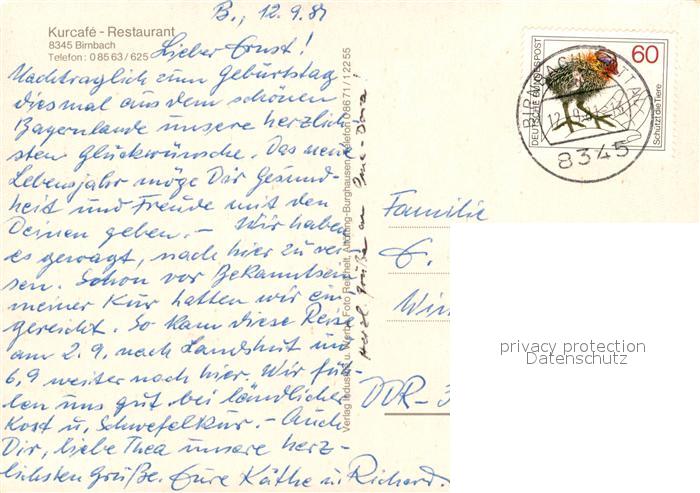 B., 12.9.81
Kurcafé - Restaurant
8345 Birnbach
Telefon: 0 85 63 / 625
Lieber Ernst!
Nachträglich zum Geburtstag
diesmal aus dem schönen
Bayernlande unsere herzlich-
sten Glückwünsche. Das neue
Lebensjahr möge Dir Gesund-
heit und Freude mit den
Deinen geben. – Wir haben
es gewagt, nach hier zu rei-
sen. Schon vor Bekanntsein
meiner Kur hatten wir ein-
gereicht. So kam diese Reise
am 2.9. nach Landshut und
6.9 weiter nach hier. Wir füh-
len uns gut bei ländlicher
Kost u. Schwefelkur. – Auch
Dir, liebe Thea unsere herz-
lichsten Grüße. Eure Käthe u. Richard.
Verlag Industrie u. Werbe Foto Reichelt, Altötting-Burghausen, Telefon 0 86 71 / 1 22 55
Herzl. Grüße an Oma-Dora!
DEUTSCHE BUNDESPOST
60
Schützt die Tiere
BIRNBACH, ROTTAL
12.9.81
8345
Familie
E.
Win
DDR-3
privacy protection
Datenschutz